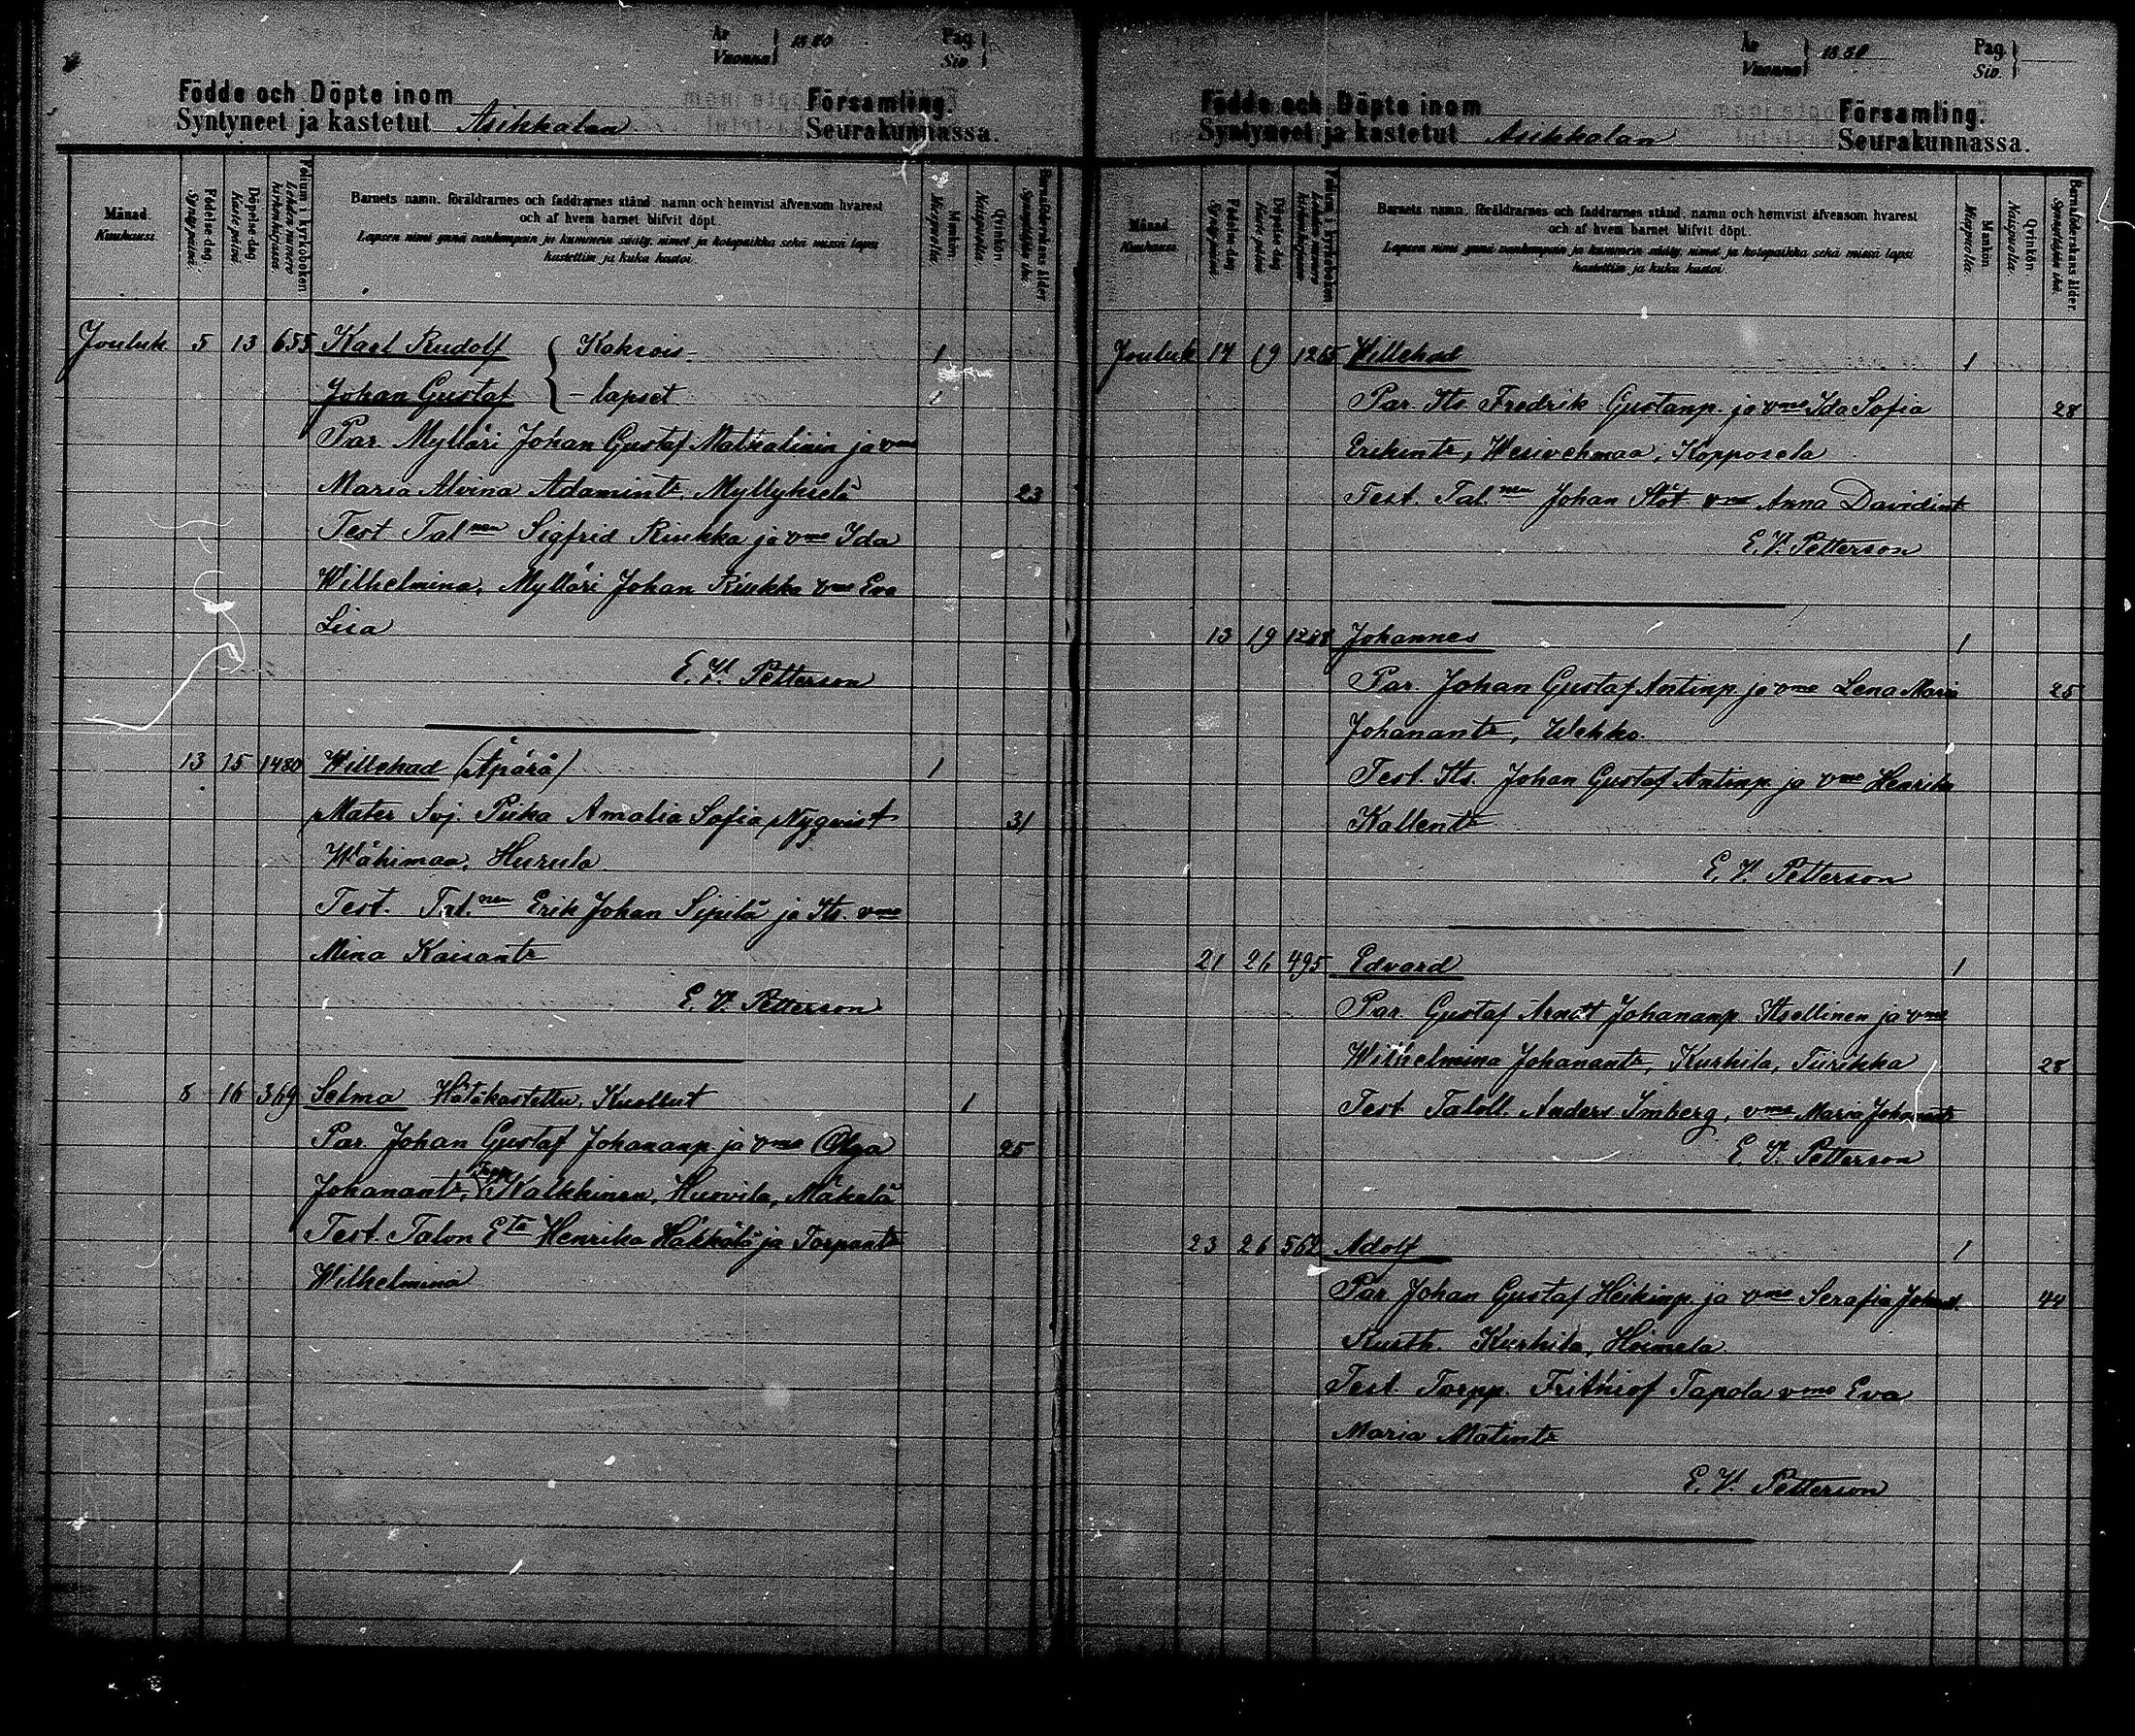 År
Vuonna } 1880
Pag.
Siv. }
Födde och Döpte inom
Syntyneet ja kastetut Asikkalan
Församling.
Seurakunnassa.
Månad.
Kuukausi.
Födelse-dag
Syntypäivä.
Döpelse-dag
Kastepäivä
Folium i kyrkoboken.
Lehden numero kirkonkirjassa.
Barnets namn, föräldrarnes och faddrarnes stånd, namn och hemvist äfvensom hvarest
och af hvem barnet blifvit döpt.
Lapsen nimi ynnä vanhempain ja kummein sääty, nimet ja kotopaikka sekä missä lapsi
kastettiin ja kuka kastoi.
Mankön
Miespuolia.
Qvinkön
Naispuolia.
Barnaföderskans ålder
Synnyttäjän ikä.
Jouluk 5 13 655 Karl Rudolf { Kaksois- 1
Johan Gustaf { -lapset 1
Par. Mylläri Johan Gustaf Matkalinin ja vmo
Maria Alvina Adamintr Myllykselä 23
Test Talnen Sigfrid Riukka ja vmo Ida
Wilhelmina, Mylläri Johan Riukka vmo Eva
Lisa
E. V. Petterson
13 15 1480 Willehad (Äpärä) 1
Mater Itj. Piika Amalia Sofia Nyqvist 31
Wähimaa, Hurula
Test. Tal.nen Erik Johan Sipilä ja Its. vmo
Mina Kaisantr
E. V. Petterson
8 16 369 Selma Hätäkastettu, Kuollut 1
Par. Johan Gustaf Johananp. ja vmo Olga 25
Johanantr, Torp. Walkkinen, Hursvila, Mäkelä
Test. Talon Eta Henrika Häkkälä ja Torpantr
Wilhelmina
År
Vuonna } 1880
Pag.
Siv. }
Födde och Döpte inom
Syntyneet ja kastetut Asikkalan
Församling.
Seurakunnassa.
Månad.
Kuukausi.
Födelse-dag
Syntypäivä.
Döpelse-dag
Kastepäivä
Folium i kyrkoboken.
Lehden numero kirkonkirjassa.
Barnets namn, föräldrarnes och faddrarnes stånd, namn och hemvist äfvensom hvarest
och af hvem barnet blifvit döpt.
Lapsen nimi ynnä vanhempain ja kummein sääty, nimet ja kotopaikka sekä missä lapsi
kastettiin ja kuka kastoi.
Mankön
Miespuolia.
Qvinkön
Naispuolia.
Barnaföderskans ålder
Synnyttäjän ikä.
Jouluk 14 19 1265 Willehad 1
Par. Its Fredrik Gustanp. ja vmo Ida Sofia 28
Erikintr, Wesivehmaa, Kopposela
Test. Tal.nen Johan Slöt vmo Anna Davidint
E. V. Petterson
13 19 1288 Johannes 1
Par. Johan Gustaf Antinp ja vmo Lena Maria 25
Johanantr, Uekko.
Test. Its. Johan Gustaf Antinp. ja vmo Henrika
Kallentr
E. V. Petterson
21 26 495 Edvard 1
Par. Gustaf Arndt Johananp. Itsellinen ja vmo
Wilhelmina Johanantr, Kurhila, Tiirikka 28
Test Taloll. Anders Imberg, vmo Maria Johanantr
E. V. Petterson
23 26 562 Adolf 1
Par. Johan Gustaf Heikinp. ja vmo Serafia Johant. 44
Rusth. Kurhila, Hoimela
Test. Torpp. Frithiof Tapola vmo Eva
Maria Matintr
E. V. Petterson